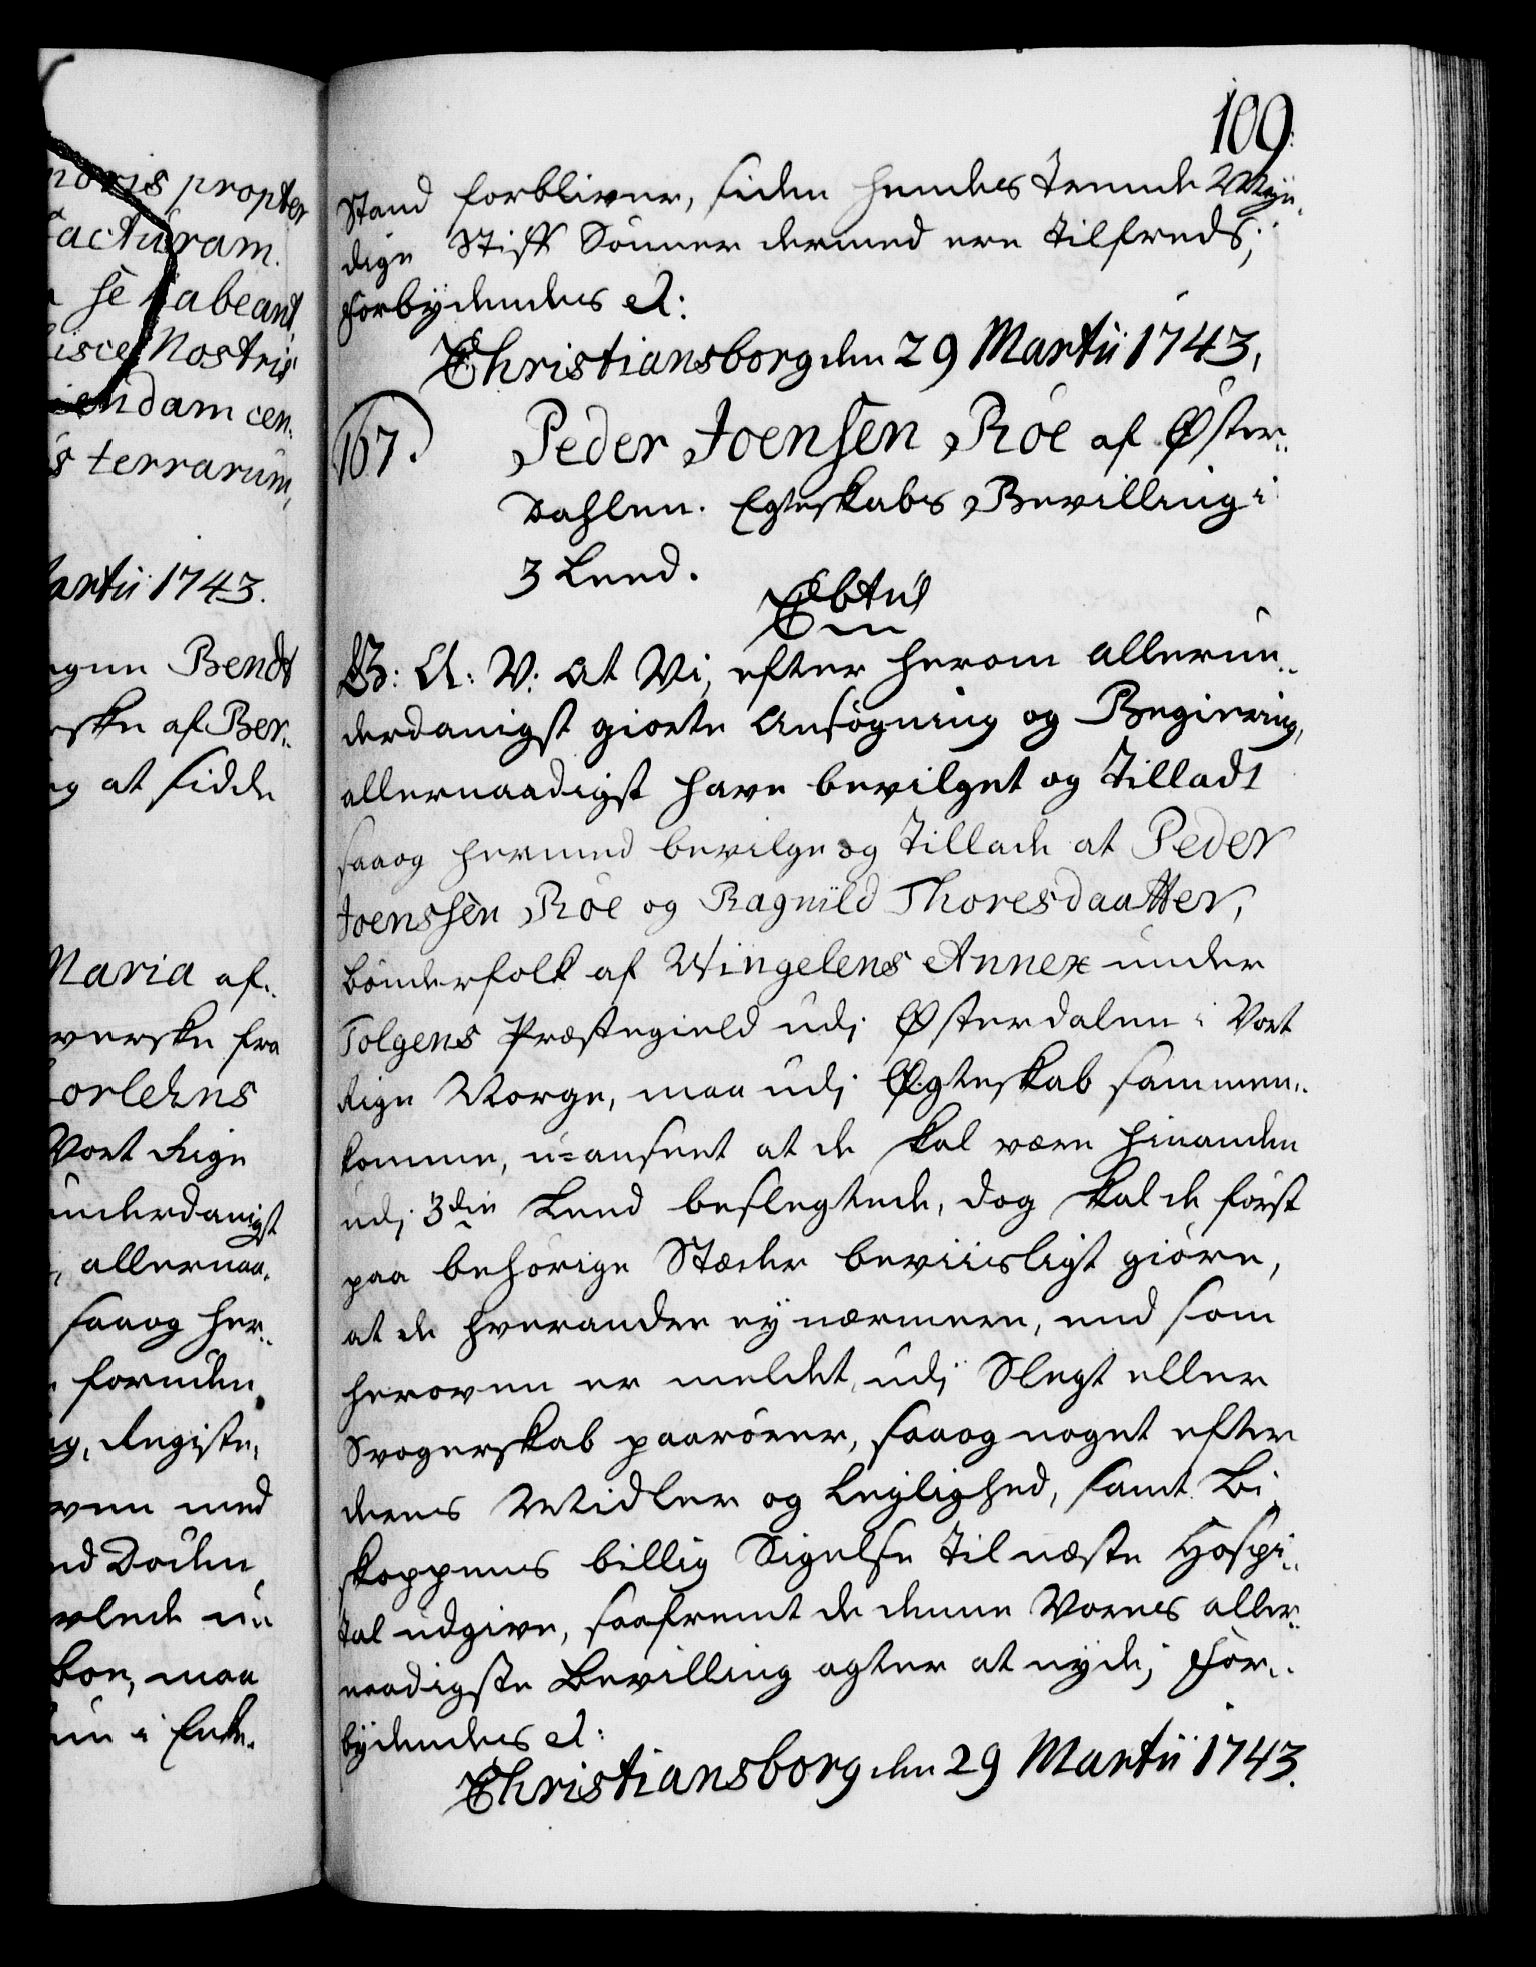 noris propter
facturam.
se habeant
Nostris
endam cen-
s terrarum,
Martii 1743.
Bendt
af Ber-
at sidde
Maria af-
verske fra
Vort Rige
underdanigst
allernaa-
saaog her-
foruden
Registe-
oven med
maa
i Enke-
109.
Stand forbliver, siden hendes Tvende Myn-
dige Stiff Sönner dermed ere tilfreds;
Forbydendes et:
Christiansborg den 29 Martii 1743,
167.
Peder Joensen Röe af Öster-
Dahlen. Egteskabs Bevilling i
3 Leed.
G: A: V: at Vi, efter herom allerun-
derdanigst giorte Ansögning og Begiering,
allernaadigst have bevilget og Tilladt
saaog hermed bevilge og Tillade at Peder
Joenssen Röe og Ragnild Thoresdaatter,
Bönderfolk af Wingelens Annex under
Tolgens Præstegield udj Österdalen i Vort
Rige Norge, maa udj Ægteskab sammen-
komme, u-anseet at de skal være hinanden
udj 3die Leed beslegtede, dog skal de först
paa behörige Stæder beviisligt giöre,
at de hverandre ey nærmere, end som
heroven er meldet, udj Slegt eller
Svogerskab paarörer, saaog noget efter
deres Midler og Leylighed, samt Bi-
skoppens billig Sigelse til næste Hospi-
tal udgive, saafremt de denne Vores aller-
naadigste Bevilling agter at nyde; For-
bydendes et:
Christiansborg den 29 Martii 1743.